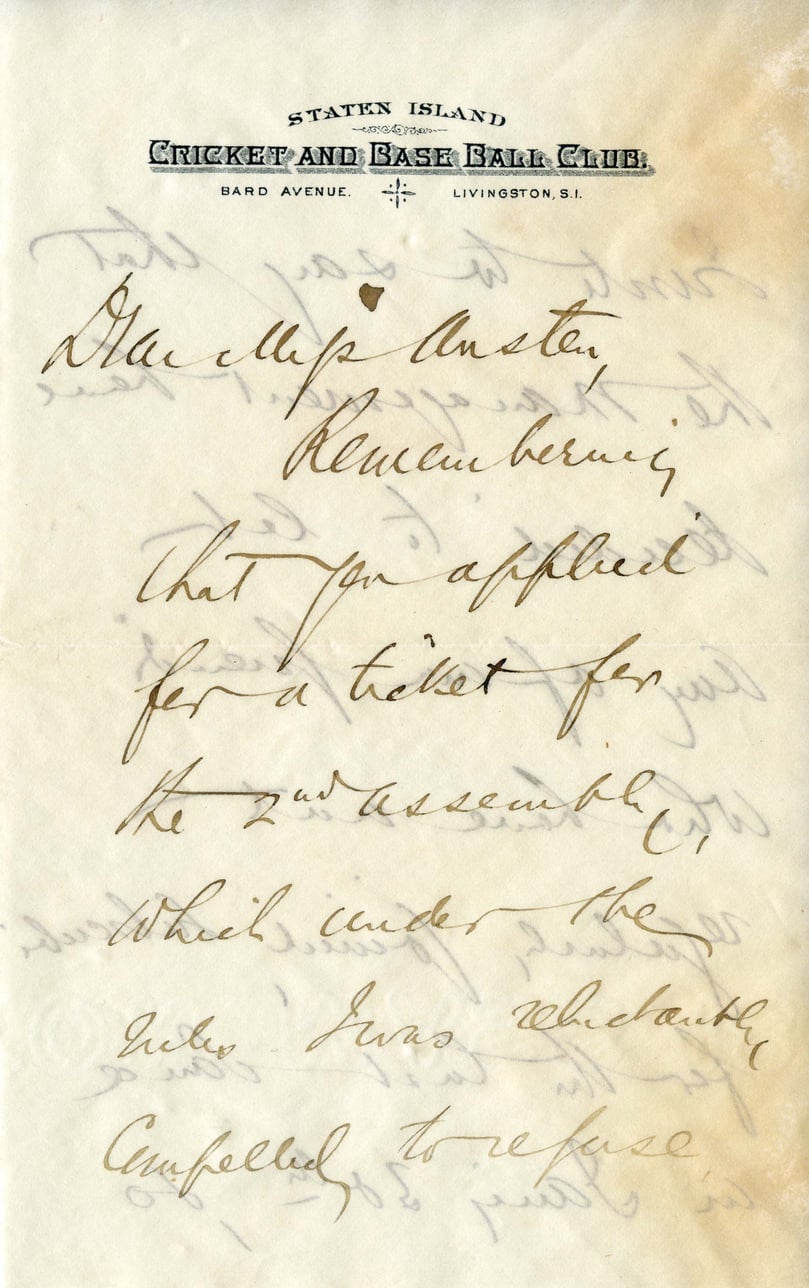 STATEN ISLAND
CRICKET AND BASE BALL CLUB.
BARD AVENUE. LIVINGSTON, S.I.
Dear Miss Austen,
Remembering
that you applied
for a ticket for
the 2nd assembly,
which under the
rules I was reluctantly
compelled to refuse,